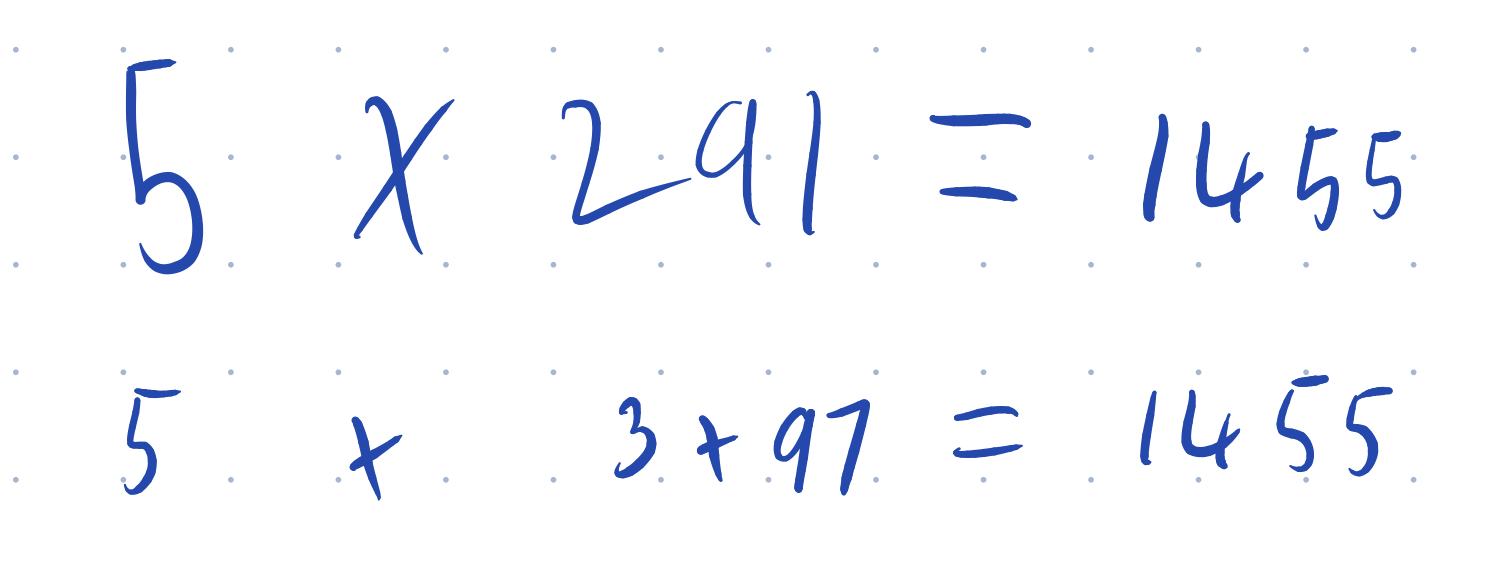 5 × 291 = 1455
5 × 3 × 97 = 1455